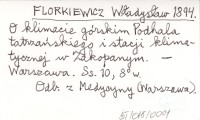 FLORKIEWICZ Władysław 1894.
O klimacie górskim Podhala
tatrzańskiego i stacyi klima-
tycznej w Zakopanym. —
Warszawa. Ss. 10, 8º w.
Odb. z Medycyny (Warszawa).